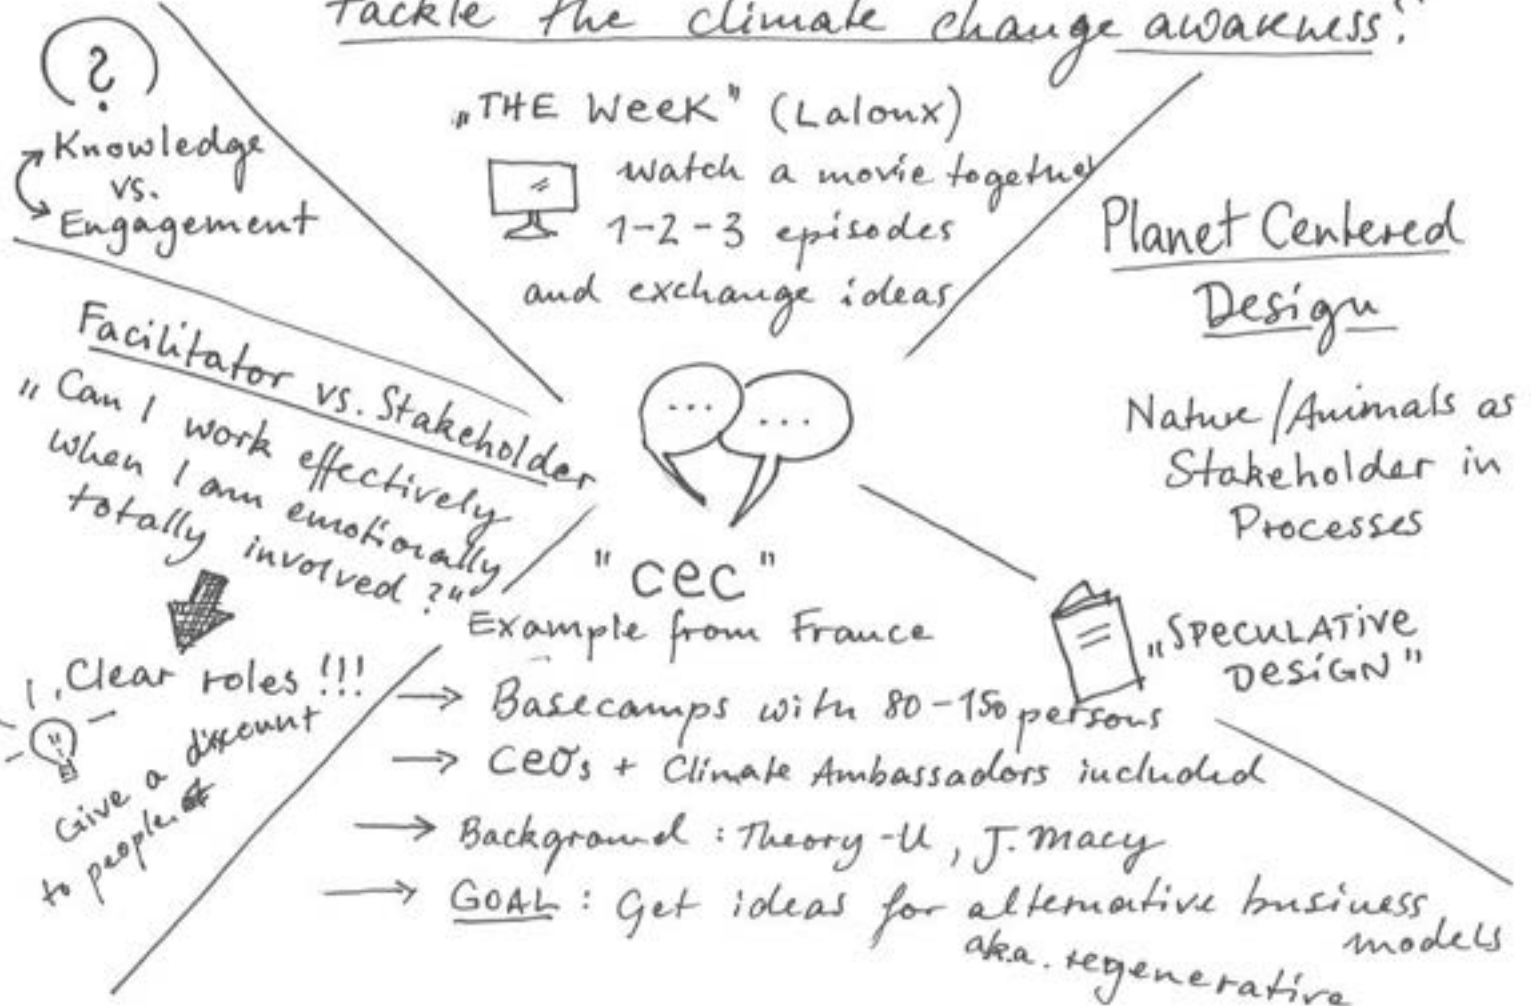 tackle the climate change awakness?
?
Knowledge
vs.
Engagement
„THE Week" (Laloux)
watch a movie together
1-2-3 episodes
and exchange ideas
Planet Centered
Design
Nature/Animals as
Stakeholder in
Processes
„SPECULATIVE
DESIGN"
Facilitator vs. Stakeholder
„Can I work effectively
when I am emotionally
totally involved?"
Clear roles!!!
Give a discount
to people
... ...
"CEC"
Example from France
→ Basecamps with 80-150 persons
→ CEOs + Climate Ambassadors included
→ Background: Theory-U, J. Macy
→ GOAL: Get ideas for alternative business
models
aka. regenerative